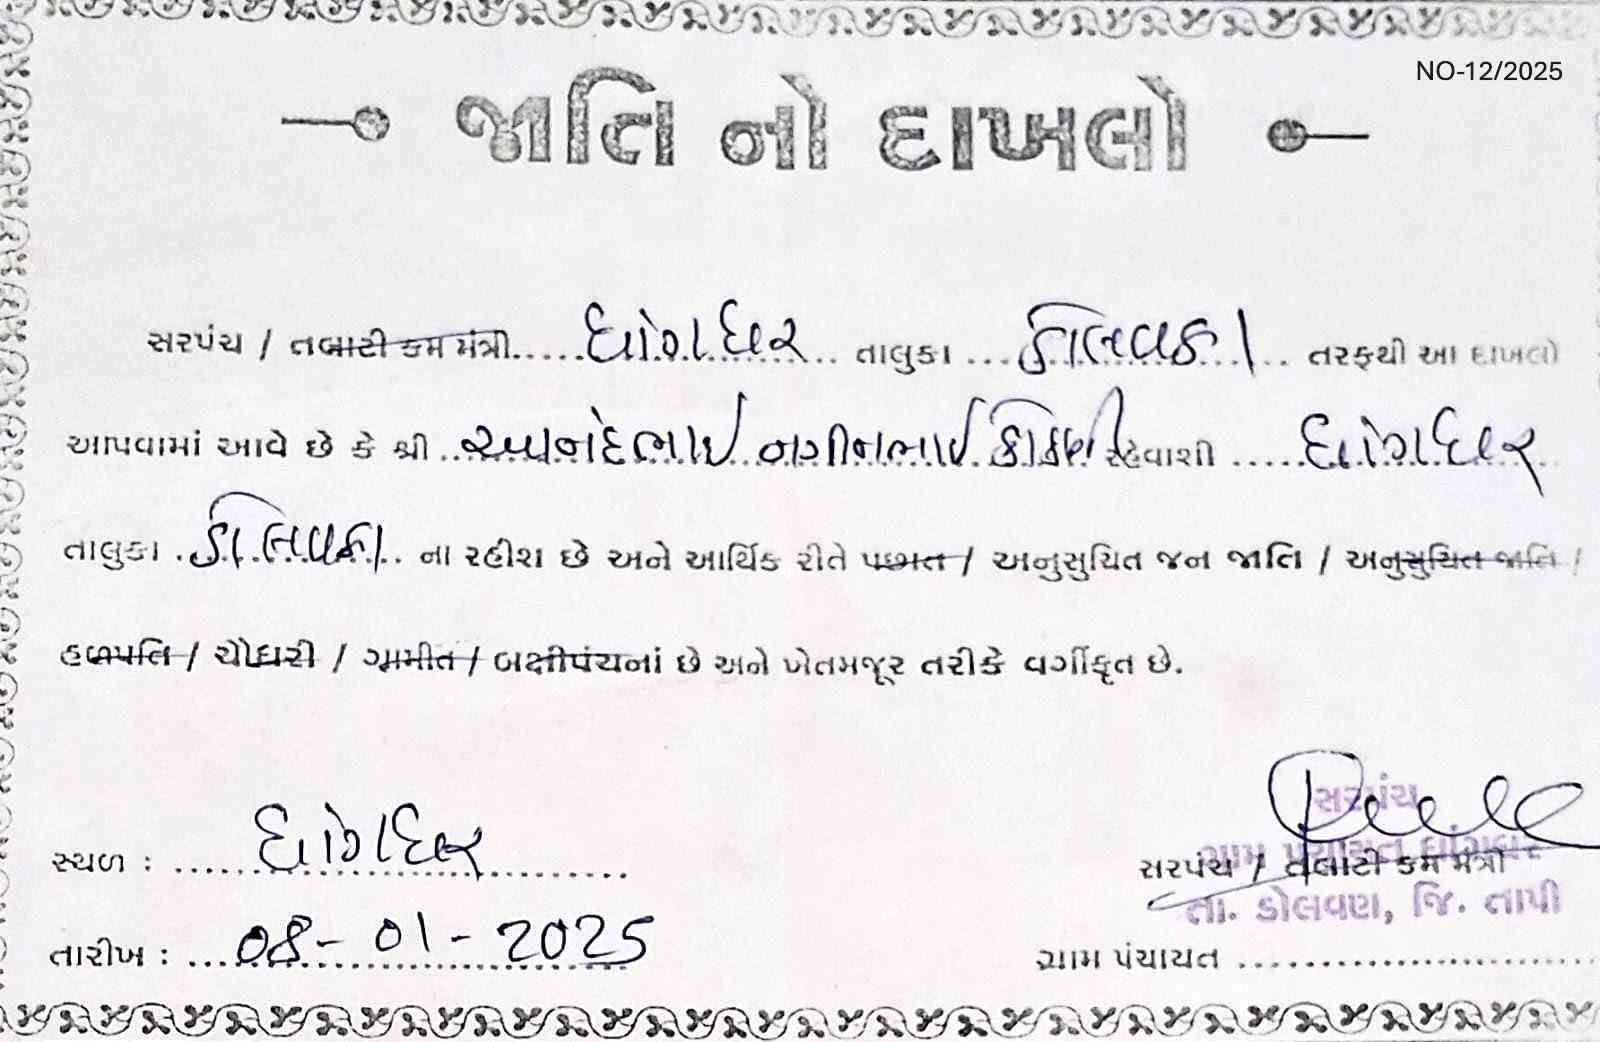 NO-12/2025
જાતિ નો દાખલો
સરપંચ / તલાટી કમ મંત્રી..... ધાંગધર .. તાલુકા ... ડોલવણ .. તરફથી આ દાખલો
આપવામાં આવે છે કે શ્રી .. આનંદભાઈ નગીનભાઈ કોંકણી રહેવાશી ..... ધાંગધર
તાલુકા . ડોલવણ .. ના રહીશ છે અને આર્થિક રીતે પછાત / અનુસુચિત જન જાતિ / અનુસુચિત જાતિ /
હળપતિ / ચૌધરી / ગામીત / બક્ષીપંચનાં છે અને ખેતમજૂર તરીકે વર્ગીકૃત છે.
સ્થળ : ધાંગધર
તારીખ : 08-01-2025
સરપંચ
ગ્રામ પંચાયત
સરપંચ / તલાટી કમ મંત્રી
તા. ડોલવણ, જિ. તાપી
ગ્રામ પંચાયત